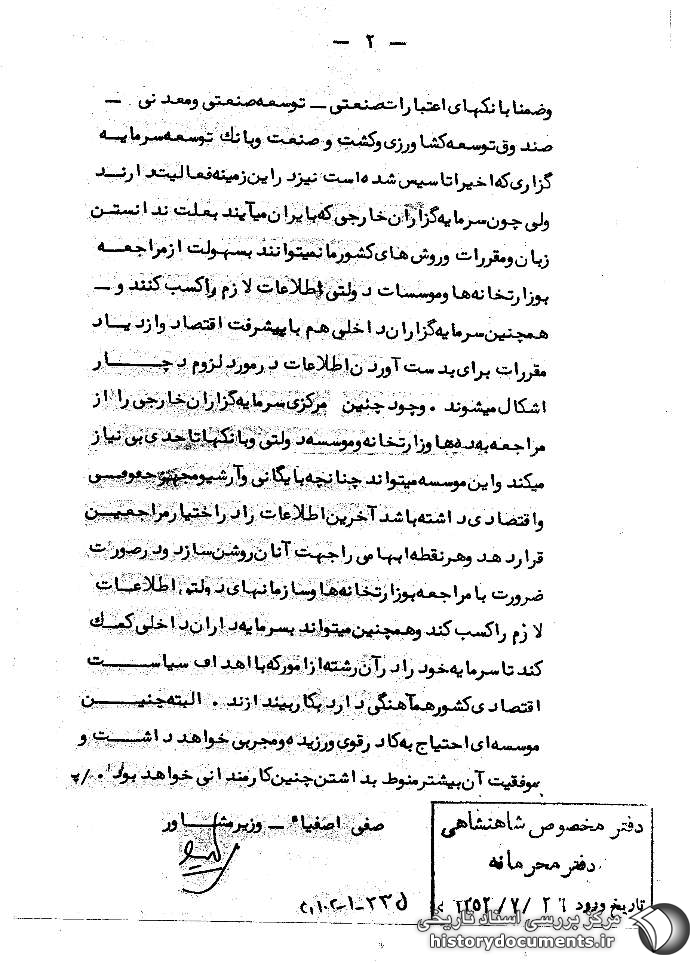 — ۲ —
وضمنا بانکهای اعتبارات صنعتی ـ توسعه صنعتی ومعدنی ـ
صندوق توسعه کشاورزی وکشت و صنعت وبانک توسعه سرمایه
گزاری که اخیرا تاسیس شده است نیزدراین زمینه فعالیت دارند
ولی چون سرمایه گزاران خارجی که بایران میآیند بعلت ندانستن
زبان ومقررات وروش های کشورمانمیتوانند بسهولت ازمراجعه
بوزارتخانه ها وموسسات دولتی اطلاعات لازم راکسب کنند و ـ
همچنین سرمایه گزاران داخلی هم باپیشرفت اقتصاد وازدیاد
مقررات برای بدست آوردن اطلاعات درمورد لزوم دچار
اشکال میشوند . وجود چنین مرکزی سرمایه گزاران خارجی را از
مراجعه به ده ها وزارتخانه وموسسه دولتی وبانکها تاحدی بی نیاز
میکند واین موسسه میتواند چنانچه بایگانی وآرشیو مجهز حقوقی
واقتصادی داشته باشد آخرین اطلاعات رادراختیارمراجعین
قراردهد وهرنقطه ابهامی راجهت آنان روشن سازد ودرصورت
ضرورت بامراجعه بوزارتخانه ها وسازمانهای دولتی اطلاعات
لازم راکسب کند وهمچنین میتواند بسرمایه داران داخلی کمک
کند تاسرمایه خود رادرآن رشته ازامورکه بااهداف سیاست
اقتصادی کشورهمآهنگی دارد بکاربیندازند . البته چنین
موسسه ای احتیاج به کادرقوی ورزیده ومجربی خواهد داشت و
موفقیت آن بیشترمنوط بداشتن چنین کارمندانی خواهد بود . /پ
صفی اصفیاء ـ وزیرمشاور
دفتر مخصوص شاهنشاهی
دفتر محرمانه
تاریخ ورود ۲۶ /۷/ ۱۳۵۲
مرکز بررسی اسناد تاریخی
historydocuments.ir